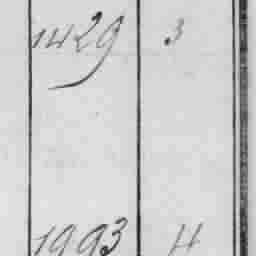 1429 3
1993 4